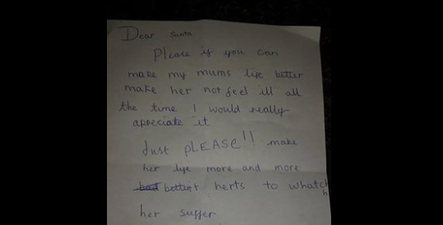 Dear Santa
Please if you can
make my mums life better
make her not feel ill all
the time I would really
apreciate it
Just pLEASE!! make
her life more and more
bettert herts to whatch
her suffer